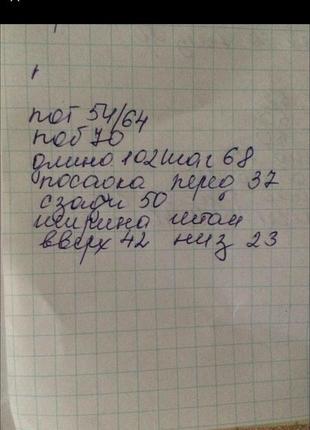 пот 54/64
поб 70
длино 102 шаг 68
посадка перед 37
сзади 50
ширина штан
вверх 42 низ 23